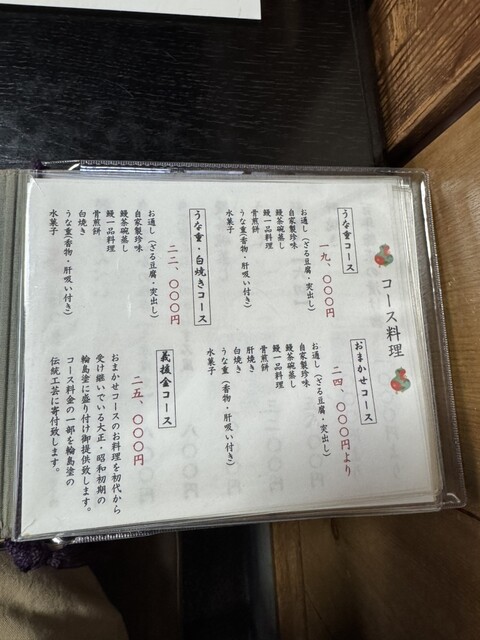 コース料理
うな重コース
一九、〇〇〇円
お通し（ざる豆腐・突出し）
自家製珍味
鰻茶碗蒸し
鰻一品料理
骨煎餅
うな重（香物・肝吸い付き）
水菓子
うな重・白焼きコース
二二、〇〇〇円
お通し（ざる豆腐・突出し）
自家製珍味
鰻茶碗蒸し
鰻一品料理
骨煎餅
白焼き
うな重（香物・肝吸い付き）
水菓子
おまかせコース
二四、〇〇〇円より
お通し（ざる豆腐・突出し）
自家製珍味
鰻茶碗蒸し
鰻一品料理
骨煎餅
肝焼き
白焼き
うな重（香物・肝吸い付き）
水菓子
義援金コース
二五、〇〇〇円
おまかせコースのお料理を初代から
受け継いでいる大正・昭和初期の
輪島塗に盛り付け御提供致します。
コース料金の一部を輪島塗の
伝統工芸に寄付致します。